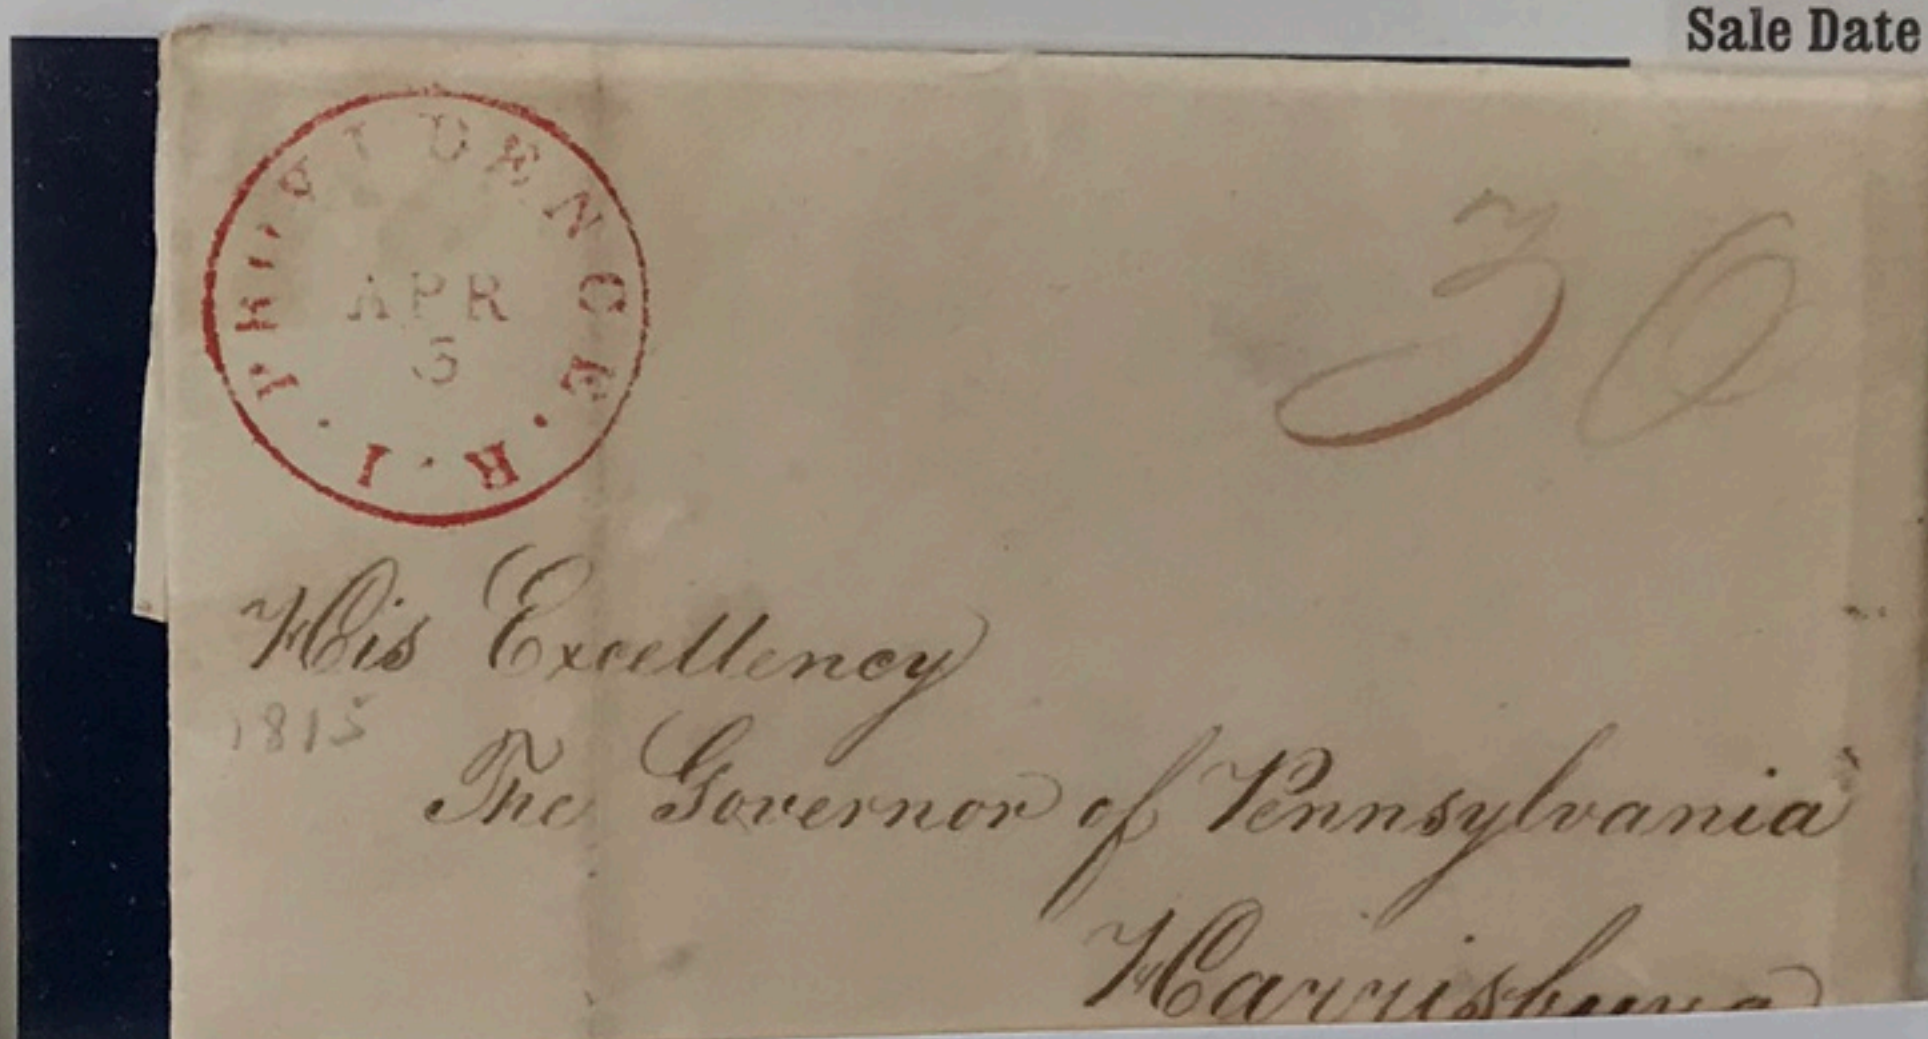 Sale Date
PROVIDENCE · R · I ·
APR
5
30
His Excellency
1815
The Governor of Pennsylvania
Harrisburg